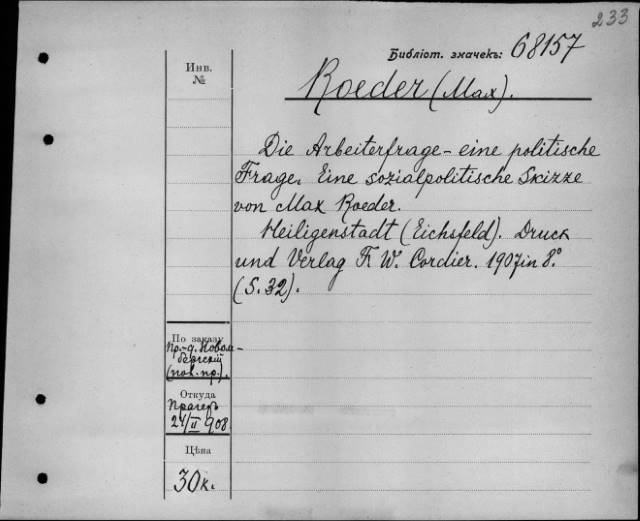 233
Библіот. значекъ: 68157
Инв.
№
Roeder (Max).
Die Arbeiterfrage - eine politische
Frage. Eine sozialpolitische Skizze
von Max Roeder.
Heiligenstadt (Eichsfeld). Druck
und Verlag F. W. Cordier. 1907 in 8.º
(S. 32).
По заказу
Пр.-д. Новом-
бергскій
(пол. пр.).
Откуда
Прагеръ
21/II 908
Цѣна
30 к.